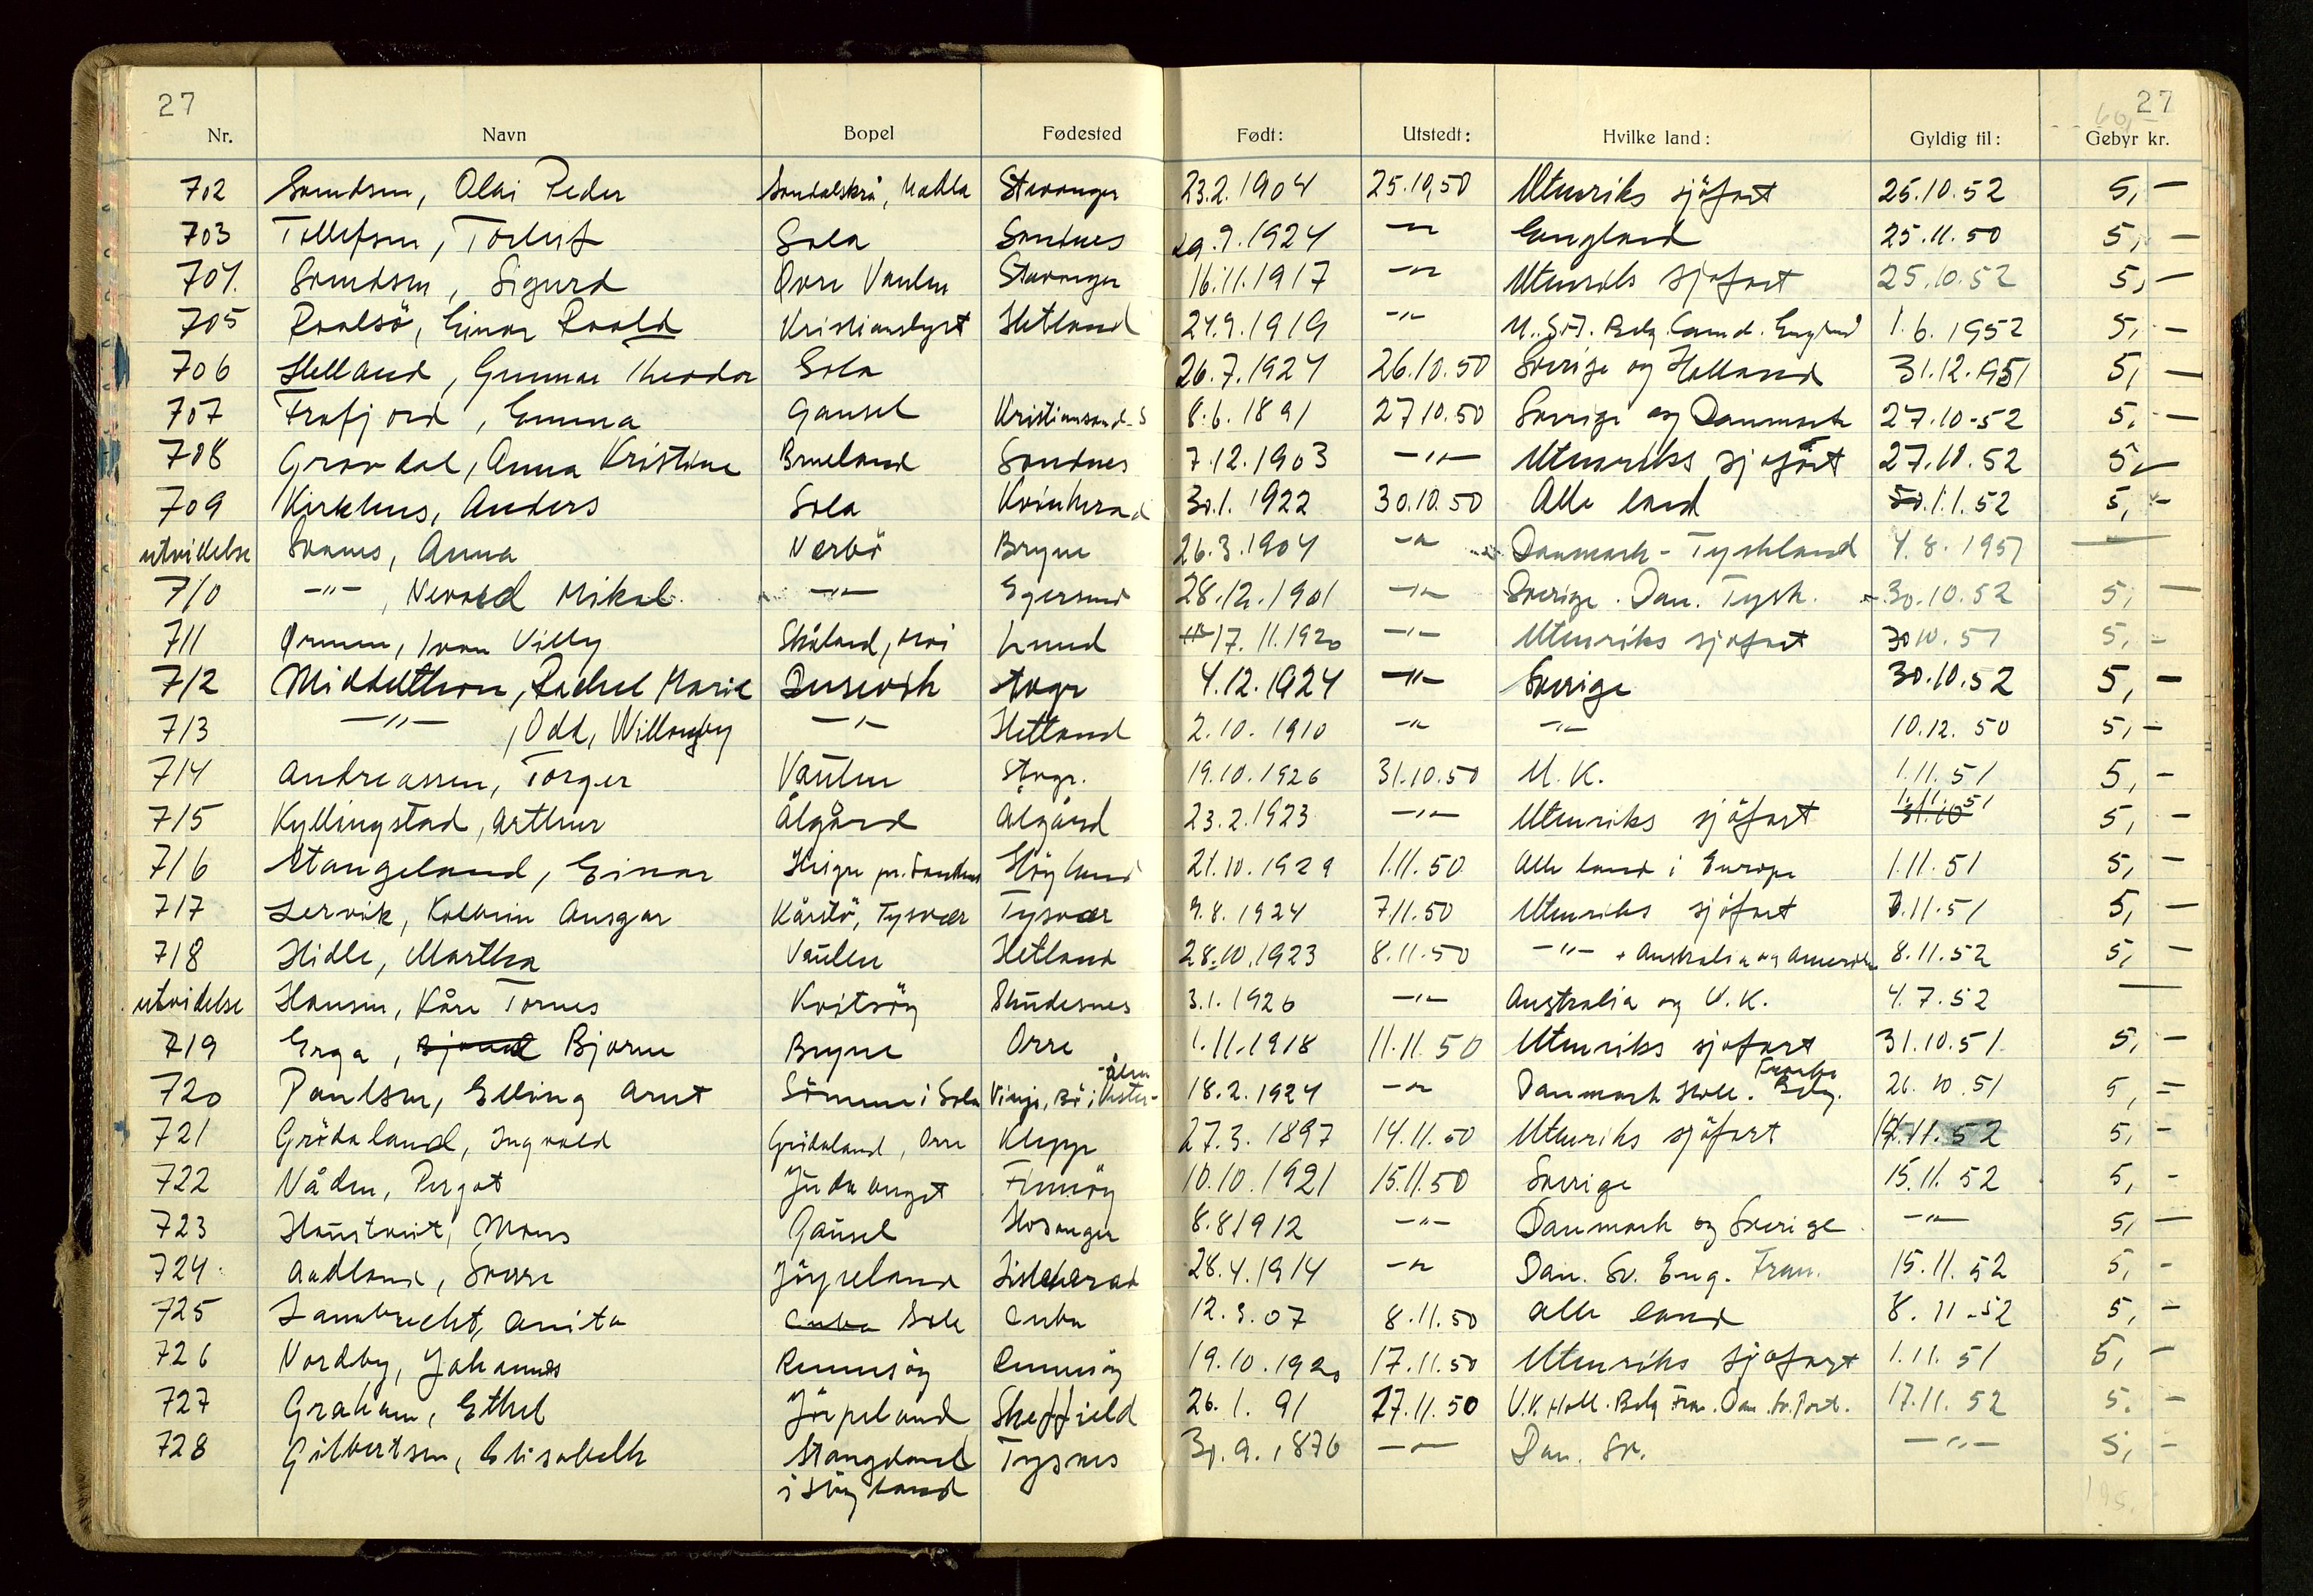 27 27
Nr. Navn Bopel Fødested Født: Utstedt: Hvilke land: Gyldig til: Gebyr kr.
702 Svendsen, Olai Peder Madla Stavanger 23.2.1904 25.10.50 Utenriks sjøfart 25.10.52 5,-
703 Tollefsen, Torleif Sola Sandnes 29.9.1924 -"- England 25.11.50 5,-
704. Svendsen, Sigurd Øvre Vaulen Stavanger 16.11.1917 -"- Utenriks sjøfart 25.10.52 5,-
705 Roalsö, Einar Roald Kristianslyst Hetland 24.9.1919 -"- U.S.A. Belg. Canad. England 1.6.1952 5,-
706 Helland, Gunnar Theodor Sola 26.7.1924 26.10.50 Sverige og Holland 31.12.1951 5,-
707 Frafjord, Emma Gausel Kristiansand-S 8.6.1891 27.10.50 Sverige og Danmark 27.10-52 5,-
708 Gravdal, Anna Kristine Brueland Sandnes 7.12.1903 -"- Utenriks sjøfart 27.10.52 5,-
709 Kirkhus, Anders Sola Kvinherad 30.1.1922 30.10.50 Alle land 1.1.52 5,-
utvidelse Svanes, Anna Nærbö Bryne 26.3.1904 -"- Danmark - Tyskland 4.8.1951 —
710 -"-, Nevald Mikal -"- Egersund 28.12.1901 -"- Sverige. Dan. Tysk. 30.10.52 5,-
711 Ørnen, Ivan Villy Skåland, Moi Lund 17.11.1920 -"- Utenriks sjøfart 30.10.51 5,-
712 Middelthon, Rachel Marie Dusevik Stvgr 4.12.1924 -"- Sverige 30.10.52 5,-
713 -"-, Odd, Willougby -"- Hetland 2.10.1910 -"- -"- 10.12.50 5,-
714 Andreassen, Torger Vaulen Stvgr. 19.10.1926 31.10.50 U.K. 1.11.51 5,-
715 Kyllingstad, Arthur Ålgård Ålgård 23.2.1923 -"- Utenriks sjöfart 31.10 1.11.51 5,-
716 Stangeland, Einar Heigre pr. Sandnes Höyland 21.10.1929 1.11.50 Alle land i Europa 1.11.51 5,-
717 Lervik, Kolbein Ansgar Kårstö, Tysvær Tysvær 9.8.1924 7.11.50 Utenriks sjöfart 7.11.51 5,-
718 Hidle, Martha Vaulen Hetland 28.10.1923 8.11.50 -"- + Australia og Amerika 8.11.52 5,-
utvidelse Hansen, Kåre Tornes Kvitsöy Skudesnes 3.1.1926 -"- Australia og U.K. 4.7.52 —
719 Erga, Bjarne Bryne Orre 1.11.1918 11.11.50 Utenriks sjøfart 31.10.51 5,-
720 Paulsen, Elling Arnt Sömme i Sola Vinje, Bö i Vester-
-ålen 18.2.1924 -"- Danmark Holl. Belg. Frankr. 26.10.51 5,-
721 Grödaland, Ingvald Grödaland, Orre Klepp 27.3.1897 14.11.50 Utenriks sjöfart 14.11.52 5,-
722 Nåden, Pergot Judaanget Finnöy 10.10.1921 15.11.50 Sverige 15.11.52 5,-
723 Haustveit, Mons Gausel Hosanger 8.8.1912 -"- Danmark og Sverige -"- 5,-
724. Aadland, Sverre Jörpeland 28.4.1914 -"- Dan. Sv. Eng. Fran. 15.11.52 5,-
725 Lambrecht, Anita Cuba Sola Cuba 12.3.07 8.11.50 Alle land 8.11-52 5,-
726 Nordby, Johannes Rennesöy Rennesöy 19.10.1920 17.11.50 Utenriks sjøfart 1.11.51 5,-
727 Graham, Ethel Jörpeland Sheffield 26.1.91 17.11.50 U.K. Holl. Belg. Fra. Dan. Sv. Port. 17.11.52 5,-
728 Gilbertsen, Elisabeth Stangeland Tysnes 30.9.1876 -"- Dan. Sv. -"- 5,-
i Höyland
195.